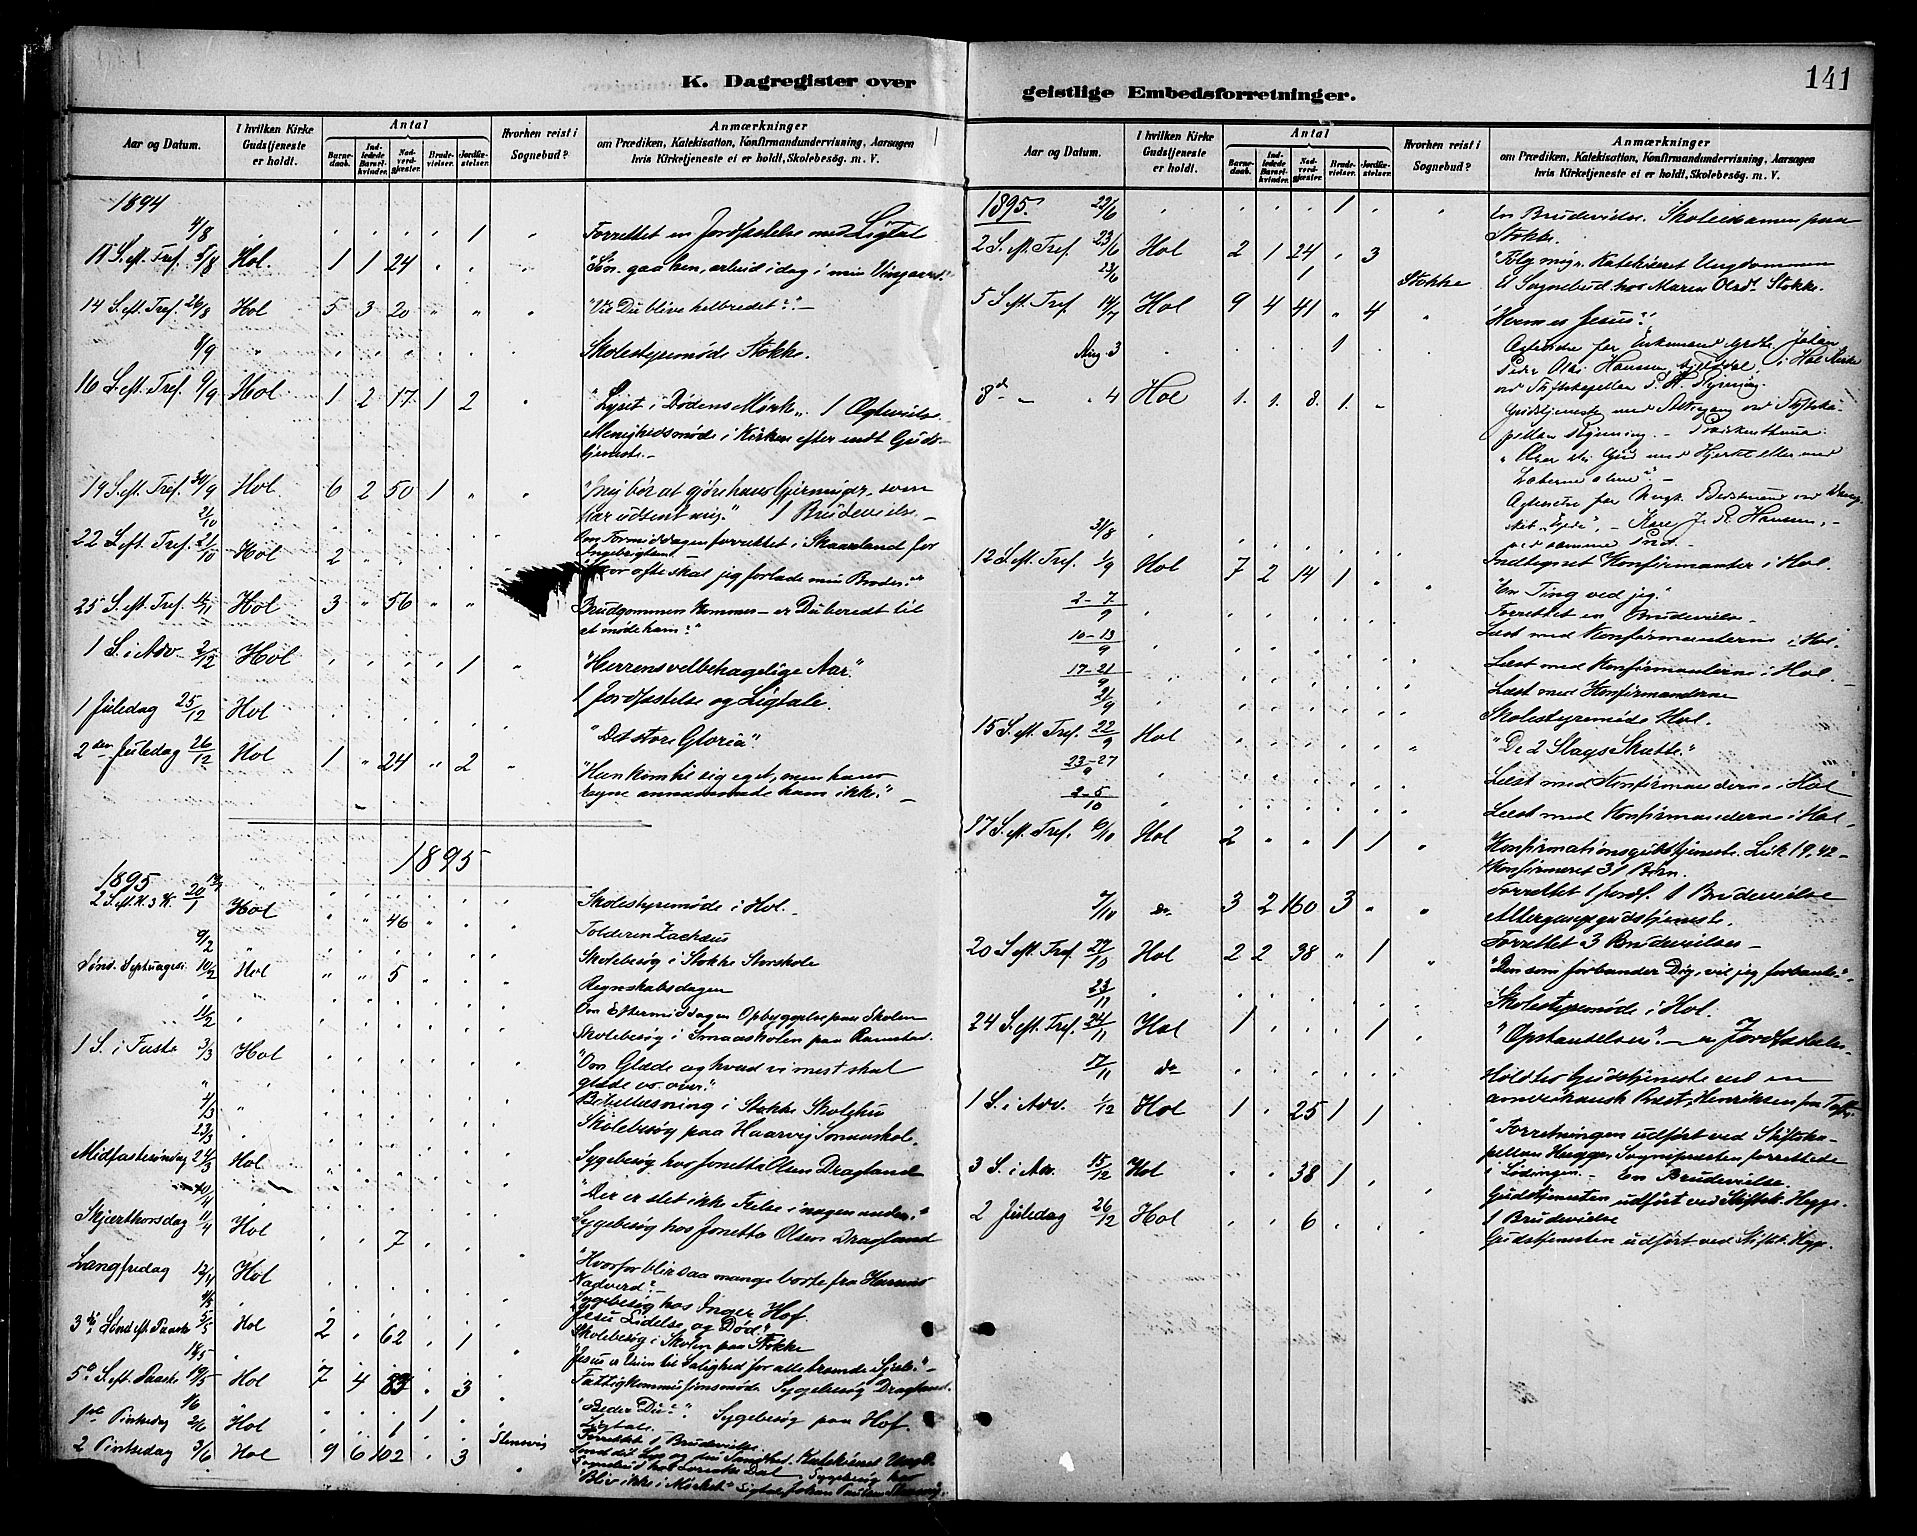 K. Dagregister over
geistlige Embedsforretninger.
141
Aar og Datum.
I hvilken Kirke Gudstjeneste er holdt.
Antal
Barnedaab.
Indledede Barselkvinder.
Nadverdgjæster.
Brudevielser.
Jordfæstelser.
Hvorhen reist i Sognebud?
Anmærkninger
om Prædiken, Katekisation, Konfirmandundervisning, Aarsagen
hvis Kirketjeneste ei er holdt, Skolebesög m. V.
1894
4/8 1 Forrettet en Jordfæstelse med Ligtale
5/8 Hol. 1 1 24 "Søn, gaa hen, arbeid i dag i min Vingaard."
14 S. eft. Tref. 26/8 Hol 5 3 20 "Vil Du blive helbredet?" -
8/9 Skolestyremøde Stokke.
16 S. eft. Tref. 9/9 Hol 1 2 17 1 2 "Lyset i Dødens Mørke". 1 Ægtevielse
Menighedsmøde i Kirken efter endt Guds-
tjeneste. -
19 S. eft. Tref. 30/9 Hol. 6 2 50 1 "Mig bør at gjøre hans Gjerninger, som
har udsent mig." 1 Brudevielse -
22 S. eft. Tref. 21/10 Hol 2 Om Formiddagen forrettet i Skaarland for
"Hvor ofte skal jeg forlade min Broder."
25 S. eft. Tref. 11/11 Hol 3 56 Brudgommen kommer - er Du beredt til
at møde ham?"
1 S. i Adv. 2/12 Hol 1 "Herrens velbehagelige Aar."
1 Jordfæstelse og Ligtale.
1 Juledag 25/12 Hol "Det store Gloria".
2den Juledag 26/12 Hol 1 24 2 "Han kom til sig eget, men hans
egne annammede ham ikke." -
1895
1895
Skolestyremøde i Hol. -
2 S. eft. H. 3 K. 20/1 Hol 46 Tolderen Zachæus
9/2 Skolebesøg i Stokke Storskole
Sønd. Septuages. 10/2 Hol 5 Regnskabsdagen
Om Eftermiddagen Opbyggelse paa Skolen
11/2 Skolebesøg i Smaaskolen paa Ramstad.
1 S. i Faste 3/3 Hol "Om Glæde og hvad vi mest skal
glæde os over."
4/3 Bibellæsning i Stokke Skolehus
23/3 Skolebesøg paa Haarvig Smaaskole.
Midfastesøndag 24/3 Hol Sygebesøg hos Jonetta Olsen Dragland
"Der er slet ikke Frelse i nogen anden."
10/4 Sygebesøg hos Jonetta Olsen Dragland
Skjærthorsdag 11/4 Hol 7 "Hvorfor blir saa mange borte fra Herrens
Nadverd?" -
Langfredag 12/4 Hol Sygebesøg hos Inger Hof
"Jesu Lidelse og Død"
4/5 Skolebesøg i Skolen paa Stokke
3die Sønd. eft. Paaske 5/5 Hol 2 62 1 "Jesus er Veien til Salighed for alle troende Sjæle." -
18/5 Fattigkommissionsmøde Sygebesøg Dragland.
5te S. eft. Paaske 19/5 Hol 7 4 83 3 "Beder Du?" Sygebesøg paa Hof.
Ligtale.
1/6 1 Forrettet 1 Brudevielse.
1ste Pintsedag 2/6 Hol 1 Stensvig
2 Pintsedag 3/6 Hol 9 6 102 3 "Bliv ikke i Mørket"
Aar og Datum.
I hvilken Kirke Gudstjeneste er holdt.
Antal
Barnedaab.
Indledede Barselkvinder.
Nadverdgjæster.
Brudevielser.
Jordfæstelser.
Hvorhen reist i Sognebud?
Anmærkninger
om Prædiken, Katekisation, Konfirmandundervisning, Aarsagen
hvis Kirketjeneste ei er holdt, Skolebesög m. V.
1895. 22/6 1 En Brudevielse. Skoleeksamen paa
Stokke.
2 S. eft. Tref. 23/6 Hol 2 1 24 3 "Følg mig". Katekiseret Ungdommen
23/6 1 Stokke Et Sognebud hos Maren Olsdt. Stokke.
5 S. eft. Tref. 14/7 Hol 9 4 41 4 "Hvem er Jesus?"
Aug. 3 1 Hansen, i Hol Kirke
8d - 4 Hol 1. 1. 8. 1.
Gudstjeneste med Altergang ved Stiftska-
pellan
31/8 Indtegnet Konfirmanter i Hol.
12 S. eft. Tref. 1/9 Hol 7 2 14 1 "En Ting ved jeg."
Forrettet en Brudevielse
2-7/9 Læst med Konfirmanterne i Hol.
10-13/9 Læst med Konfirmanterne i Hol. -
17-21/9 Læst med Konfirmanderne
21/9 Skolestyremøde Hol.
15 S. eft. Tref. 22/9 Hol "De 2 Slags Skatte."
23-27/9 Læst med Konfirmanderne i Hol
2-5/10 Læst med Konfirmanderne i Hol -
17 S. eft. Tref. 6/10 Hol 2 1 1 Konfirmationsgudstjeneste. Luk 19, 42 -
Konfirmeret 31 Børn.
Forrettet 1 Jordf. 1 Brudevielse
7/10 do 3 2 160 3 Altergangsgudstjeneste.
Forrettet 3 Brudevielser -
20 S. eft. Tref. 27/10 Hol 2 2 38 1 "Den som forbander Dig, vil jeg forbande."
23/11 Skolestyremøde i Hol.
24 S. eft. Tref. 24/11 Hol 1 1 "Opstandelsen". - en Jordfæstelse.
17/11 do Holdtes Gudstjeneste ved en
amerikansk Prest, Henriksen
1 S. i Adv. 1/12 Hol 1 25 1 1 "Forretningen udført ved Stiftska-
pellan Hygge, Sognepresten forrettede
i Lødingen. En Brudevielse.
3 S. i Adv. 15/12 Hol 38 1 Gudstjenesten udført ved Stiftsk. Hygge.
1 Brudevielse
2 Juledag 26/12 Hol 6 Gudstjenesten udført ved Stiftsk. Hygge.